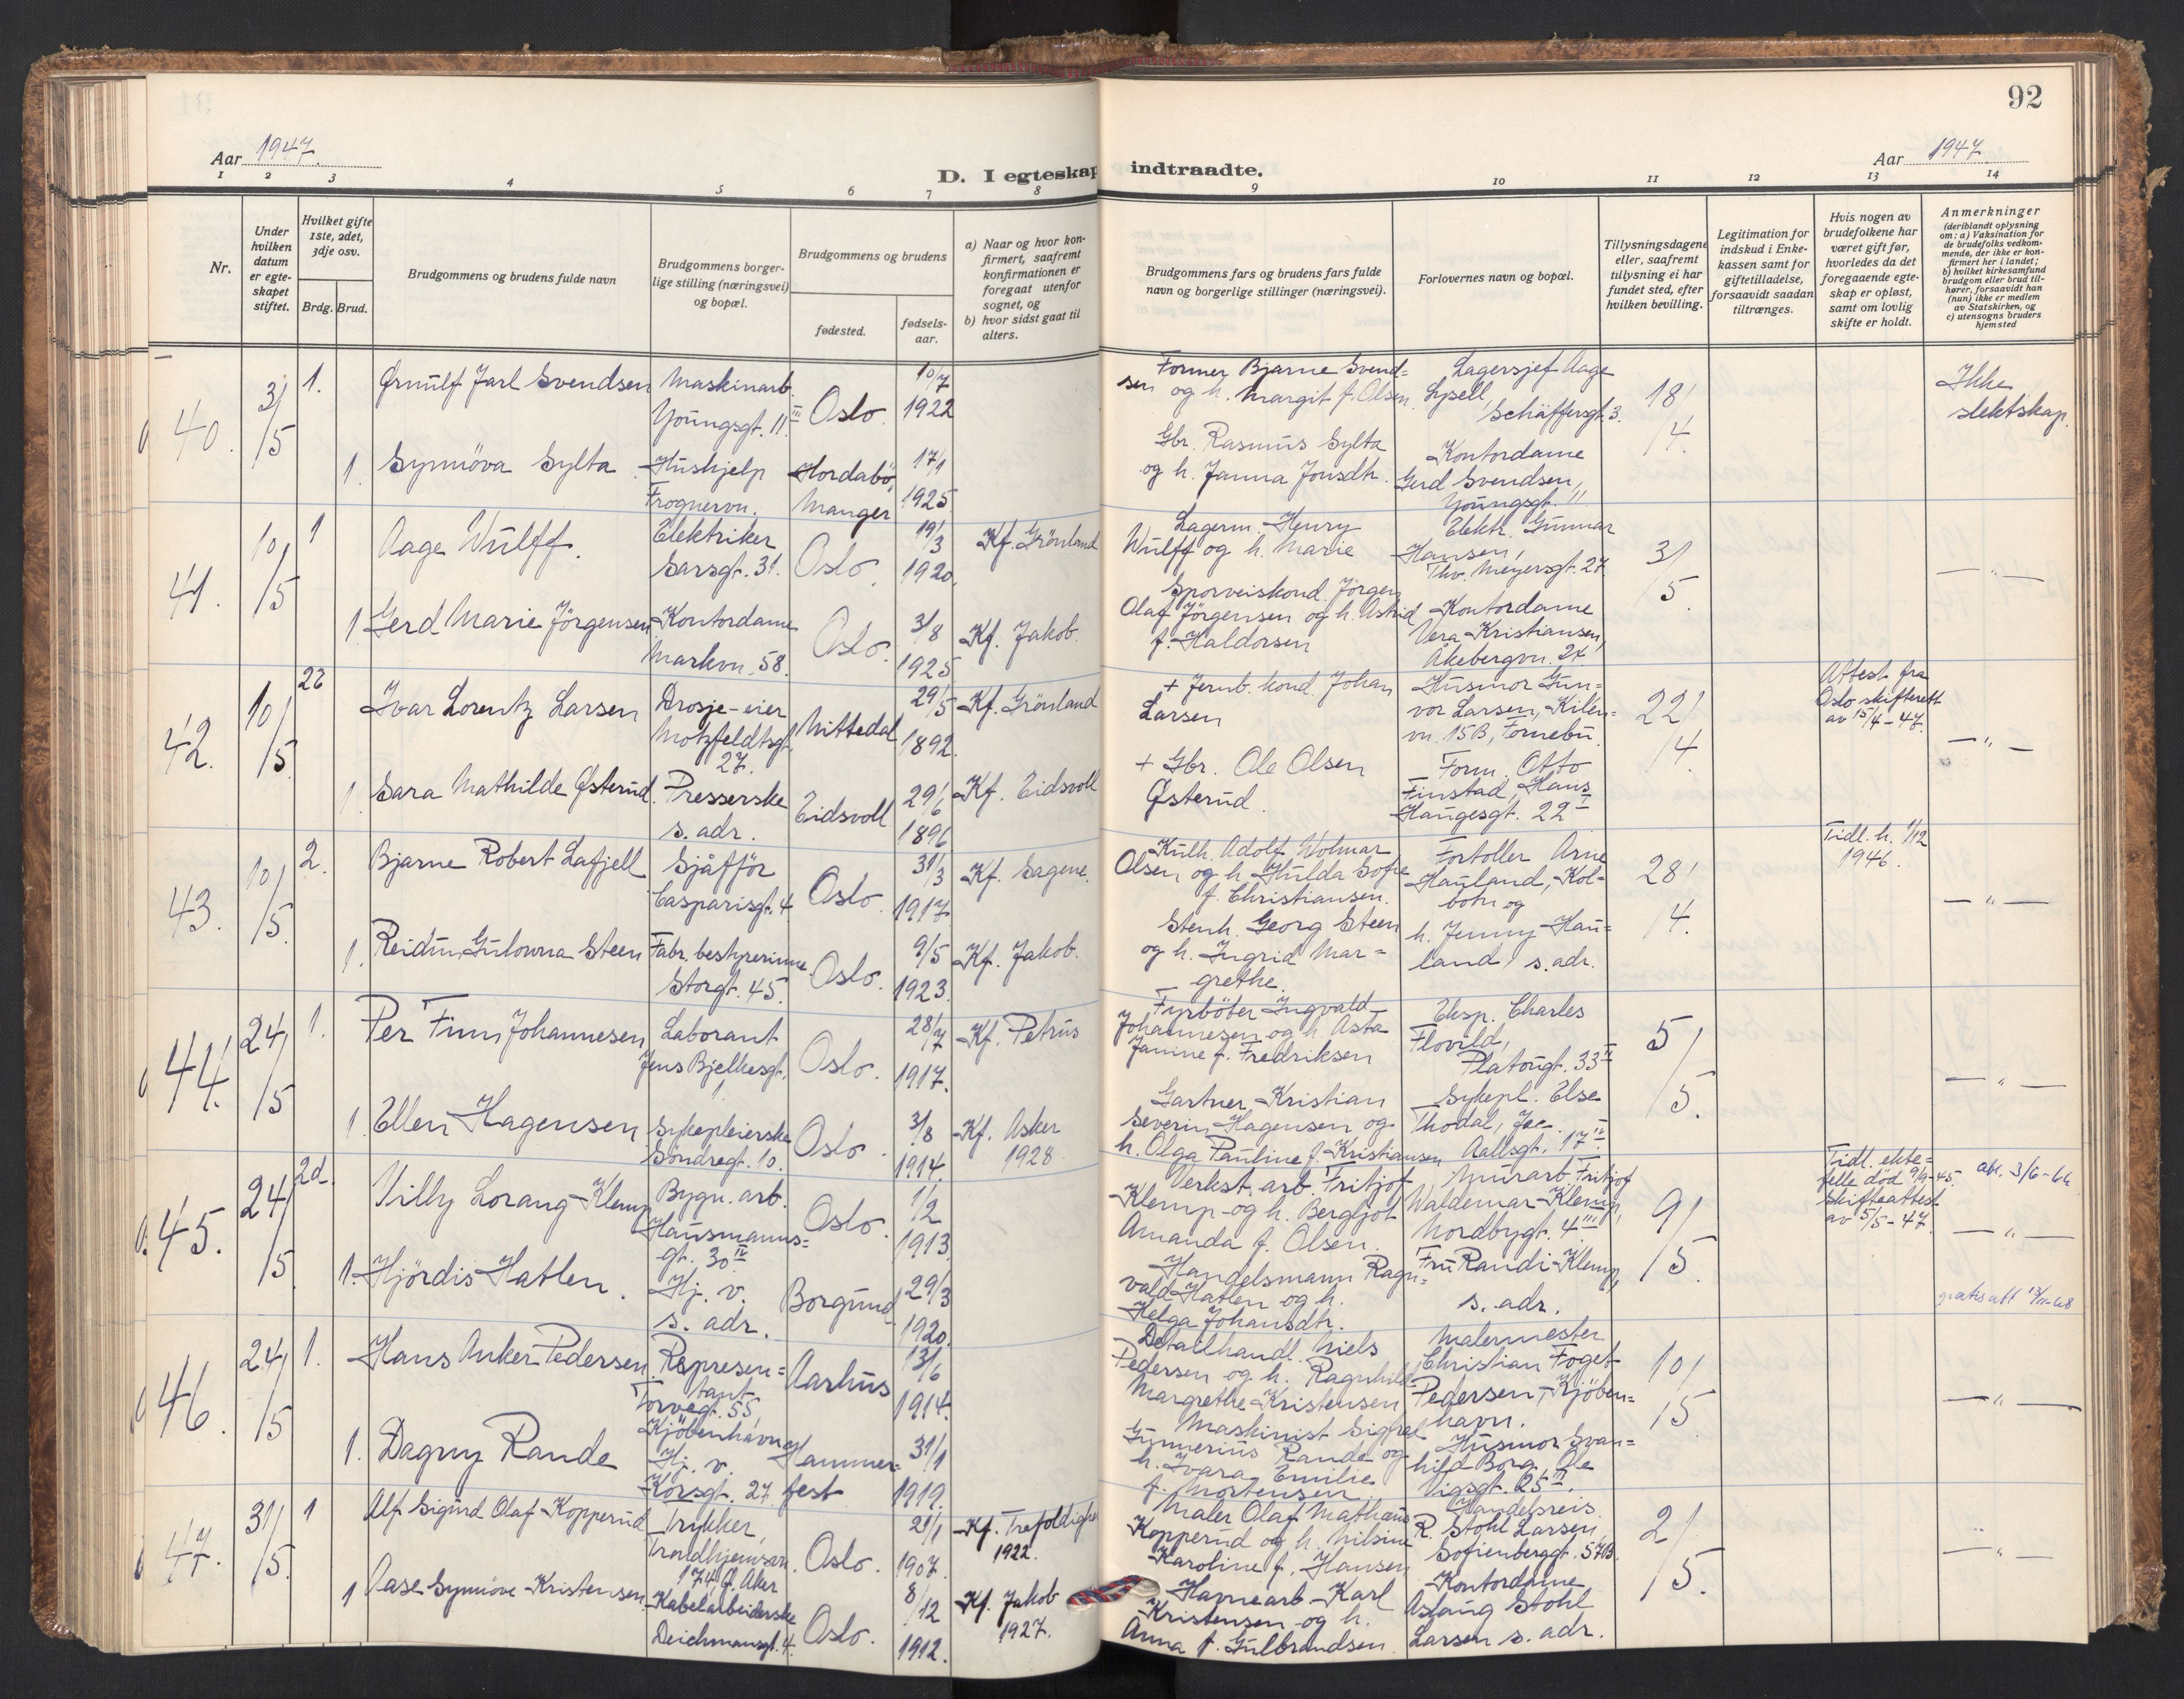 92
Aar 1947.
Aar 1947.
D. I egteskap indtraadte.
1 2 3 4 5 6 7 8 9 10 11 12 13 14
Nr.
Under hvilken datum er egteskapet stiftet.
Hvilket gifte 1ste, 2det, 3dje osv.
Brdg. Brud.
Brudgommens og brudens fulde navn
Brudgommens borgerlige stilling (næringsvei) og bopæl.
Brudgommens og brudens
fødested.
fødselsaar.
a) Naar og hvor konfirmert, saafremt konfirmationen er foregaat utenfor sognet, og
b) hvor sidst gaat til alters.
Brudgommens fars og brudens fars fulde navn og borgerlige stillinger (næringsvei).
Forlovernes navn og bopæl.
Tillysningsdagene eller, saafremt tillysning ei har fundet sted, efter hvilken bevilling.
Legitimation for indskud i Enkekassen samt for giftetilladelse, forsaavidt saadan tiltrænges.
Hvis nogen av brudefolkene har været gift før, hvorledes da det foregaaende egteskap er opløst, samt om lovlig skifte er holdt.
Anmerkninger (deriblandt oplysning om: a) Vaksination for de brudefolks vedkommende, der ikke er konfirmert her i landet; b) hvilket kirkesamfund brudgom eller brud tilhører, forsaavidt han (hun) ikke er medlem av Statskirken, og c) utensogns bruders hjemsted
40. 3/5 1. Ørnulf Jarl Svendsen Maskinarb. Youngsgt. 11 III Oslo. 10/7 1922
Former Bjarne Svend=
sen og h. Margit f. Olsen
Lagersjef Aage
Lysell,
Schäffersgt. 3.
18/4.
Ikke
slektskap.
1. Synnöva Sylta Hushjelp Frognervn. Hordabö, Manger 17/1 1925.
Gbr. Rasmus Sylta
og h. Janna Jonsdtr.
Kontordame
Gerd Svendsen,
Youngsgt. 11
41. 10/5 1 Aage Wulff. Elektriker Sarsgt. 31. Oslo. 19/3 1920. Kf. Grönland
Lagerm. Henry
Wulff og h. Marie
Elektr. Gunnar
Hansen,
Thv. Meyersgt. 27
3/5.
— " —
1 Gerd Marie Jörgensen Kontordame Markvn. 58. Oslo. 3/8 1925 Kf. Jakob.
Sporveiskond. Jörgen
Olaf Jörgensen og h. Astrid
f. Haldorsen
Kontordame
Vera Kristiansen,
Åkebergvn. 24.
42. 10/5 2 Ivar Lorentz Larsen Drosje-eier Motzfeldtsgt. 27. Nittedal 29/5 1892. Kf. Grönland
+ Jernb. kond. Johan
Larsen
Husmor Gun=
vor Larsen, Kilen=
vn. 15 B, Fornebu.
22/4.
Attest fra
Oslo skifterett
av 15/4-47.
— " —
1 Sara Mathilde Østerud. Presserske s. adr. Eidsvoll 29/6 1896 Kf. Eidsvoll
+ Gbr. Ole Olsen
Østerud.
Form. Otto
Finstad, Hans
Haugesgt. 22 I
43. 10/5. 2. Bjarne Robert Lafjell Sjåfför Casparisgt. 4 Oslo. 31/3 1917. Kf. Sagene.
Kulh. Adolf Wolmar
Olsen og h. Hulda Sofie
f. Christiansen.
Fortoller Arne
Hauland, Kol=
botn og
28/4.
Tidl. h. 1/12
1946.
— " —
1. Reidun Gulowna Steen Fabr. bestyrerinne. Storgt. 45. Oslo. 9/5 1923. Kf. Jakob.
Stenh. Georg Steen
og h. Ingrid Mar=
grethe.
h. Jenny Hau=
land, s. adr.
44. 24/5 1. Per Finn Johannesen Laborant Jens Bjelkesgt. Oslo. 28/7 1917. Kf. Petrus
Fyrböter Ingvald
Johannesen og h. Asta
Janine f. Fredriksen
Eksp. Charles
Flovild,
Platougt. 33 II
5/5.
— " —
1. Ellen Hagensen Sykepleierske Sondregt. 10. Oslo. 3/8 1914. Kf. Asker 1928.
Gartner Kristian
Severin Hagensen og
h. Olga Pauline f. Kristiansen
Sykepl. Else
Thodal,
Aallsgt. 17 II
45. 24/5 2d. Willy Lorang Klemp Bygn. arb. Hausmanns=gt. 30 IV Oslo. 1/2 1913.
Verkst. arb. Fritjof
Klemp og h. Bergljot
Amanda f. Olsen.
Murarb. Fritjof
Waldemar Klemp,
Nordbygt. 4 III
9/5.
Tidl. ekte=
felle död 9/9-45.
Skifteattest
av 5/5-47.
att. 3/6-64
— " —
1. Hjördis Hatlen. Hj. v. s. adr. Borgund 29/3 1920.
Handelsmann Ragn=
vald Hatlen og h.
Helga Johansdtr.
Fru Randi Klemp,
s. adr.
46. 24/5 1. Hans Anker Pedersen. Represen=tant Torvegt. 55, Kjöbenhavn. Aarhus 13/6 1914.
Detailhandl. Niels
Pedersen og h. Ragnhild
Margrethe Kristensen
Malermester
Christian Foget
Pedersen, Kjöben=
havn.
10/5
— " —
1. Dagny Rande Hj. v. Korsgt. 27. Hammer=fest 31/1 1919.
+ Maskinist Sigfred
Gunnerius Rande og
h. Ivara Emilie
f. Mortensen.
Husmor Svan=
hild Borg, Ole
Vigsgt. 25 III.
47. 31/5. 1 Alf Sigurd Olaf Kopperud Trykker, Trondhjemsvn. 174 Aker Oslo. 21/1 1907. Kf. Trefoldigh 1922.
Maler Olaf Mathæus
Kopperud og h. Nilsine
Karoline f. Hansen
Handelsreis.
R. Stohl Larsen,
Sofienberggt. 57B.
2/5.
— " —
1 Aase Synnöve Kristensen. Kabelarbeiderske Deichmansgt. 4. Oslo. 8/12 1912. Kf. Jakob 1927.
Havnearb. Karl
Kristensen og h.
Anna f. Gulbrandsen.
Kontordame
Aslaug Stohl
Larsen s. adr.